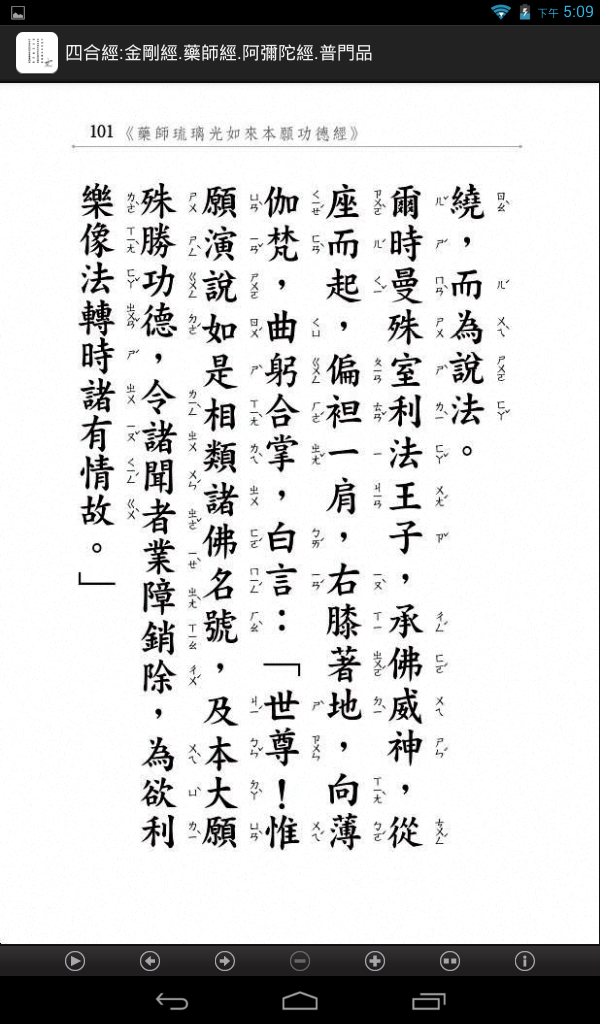 下午 5:09
四合經:金剛經.藥師經.阿彌陀經.普門品
101 《藥師琉璃光如來本願功德經》
繞，而為說法。
爾時曼殊室利法王子，承佛威神，從
座而起，偏袒一肩，右膝著地，向薄
伽梵，曲躬合掌，白言：「世尊！惟
願演說如是相類諸佛名號，及本大願
殊勝功德，令諸聞者業障銷除，為欲利
樂像法轉時諸有情故。」